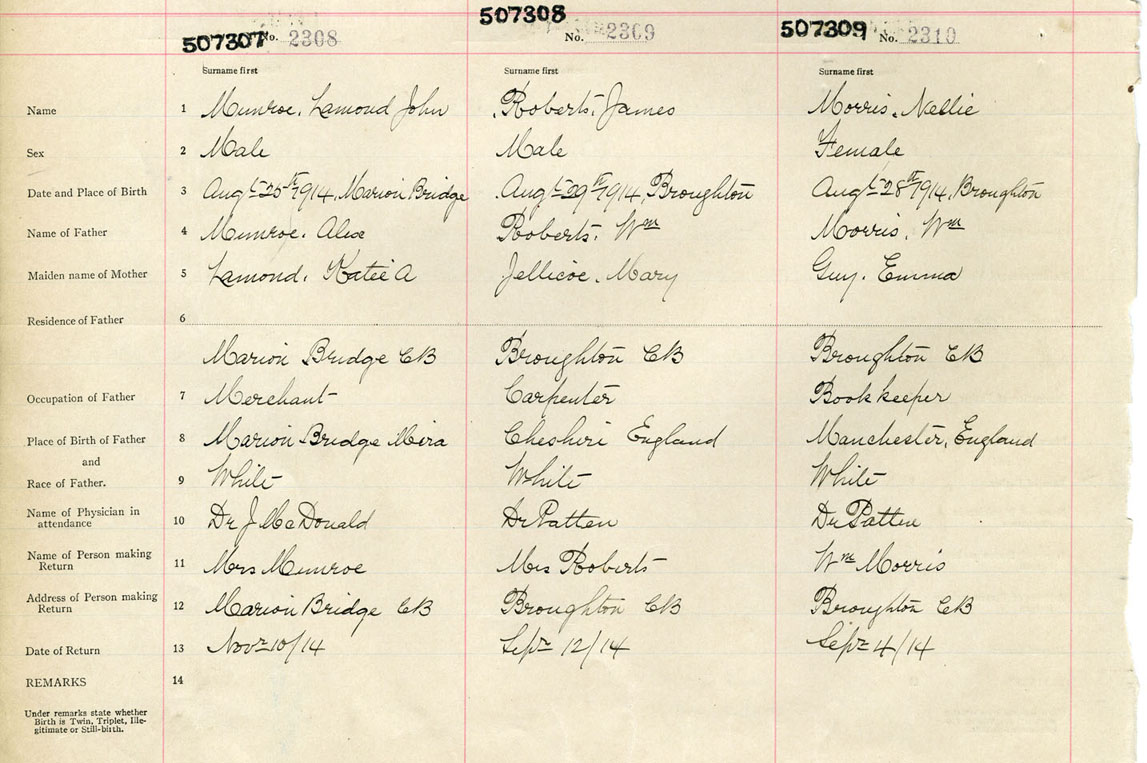 507307 No. 2308 507308 No. 2309 507309 No. 2310
Surname first Surname first Surname first
Name 1 Munroe, Lamond John Roberts, James Morris, Nellie
Sex 2 Male Male Female
Date and Place of Birth 3 Augt 25th 1914, Marion Bridge Augt 29th 1914, Broughton Augt 28th 1914, Broughton
Name of Father 4 Munroe, Alex Roberts, Wm Morris, Wm
Maiden name of Mother 5 Lamond, Katie A Jellicoe, Mary Guy, Emma
Residence of Father 6
Marion Bridge CB Broughton CB Broughton CB
Occupation of Father 7 Merchant Carpenter Bookkeeper
Place of Birth of Father 8 Marion Bridge Mira Cheshire England Manchester, England
and
Race of Father. 9 White White White
Name of Physician in
attendance 10 Dr J McDonald Dr Patten Dr Patten
Name of Person making
Return 11 Mrs Munroe Mrs Roberts Wm Morris
Address of Person making
Return 12 Marion Bridge CB Broughton CB Broughton CB
Date of Return 13 Novr 10/14 Sepr 12/14 Sepr 4/14
REMARKS 14
Under remarks state whether
Birth is Twin, Triplet, Ille-
gitimate or Still-birth.